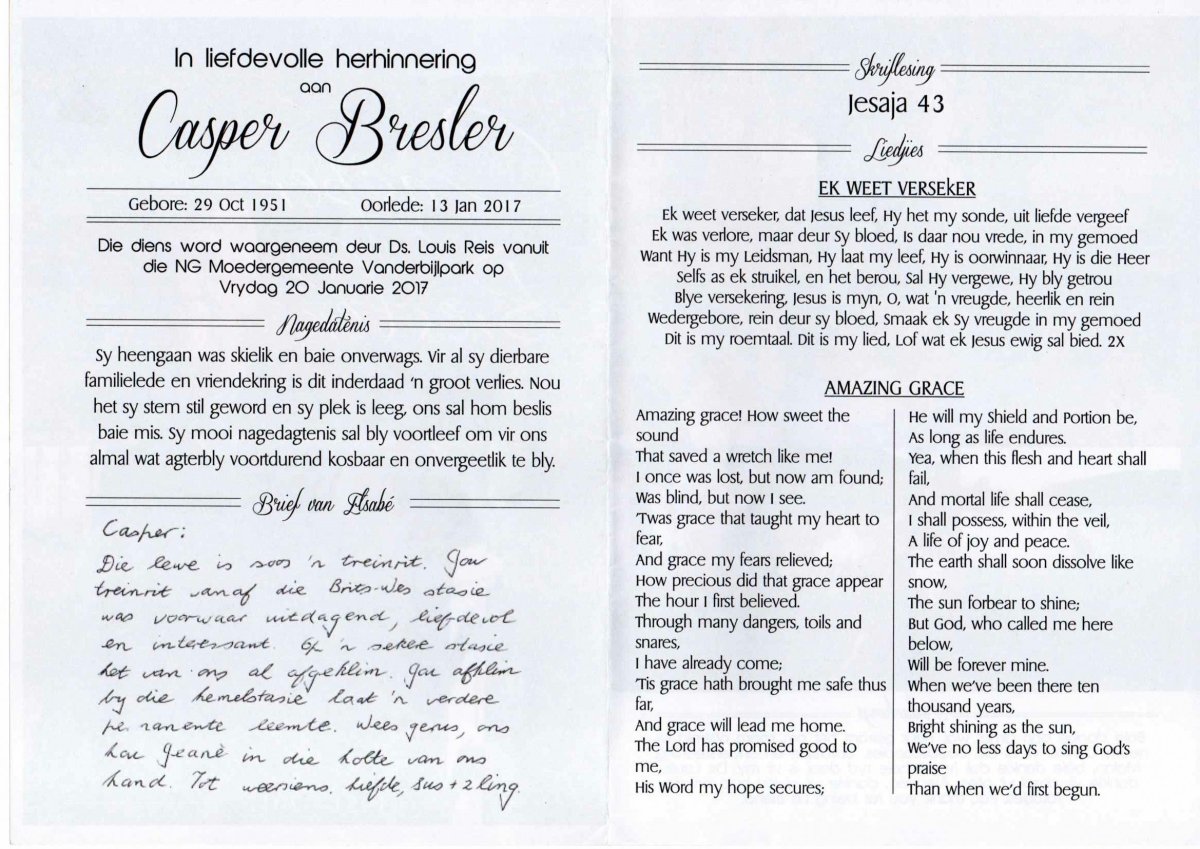 In liefdevolle herhinnering
aan
Casper Bresler
Gebore: 29 Oct 1951 Oorlede: 13 Jan 2017
Die diens word waargeneem deur Ds. Louis Reis vanuit
die NG Moedergemeente Vanderbijlpark op
Vrydag 20 Januarie 2017
Nagedatênis
Sy heengaan was skielik en baie onverwags. Vir al sy dierbare
familielede en vriendekring is dit inderdaad 'n groot verlies. Nou
het sy stem stil geword en sy plek is leeg, ons sal hom beslis
baie mis. Sy mooi nagedagtenis sal bly voortleef om vir ons
almal wat agterbly voortdurend kosbaar en onvergeetlik te bly.
Brief van Elsabé
Casper:
Die lewe is soos 'n treinrit. Jou
treinrit vanaf die Brits-Wes stasie
was voorwaar uitdagend, liefdevol
en interessant. Op 'n seker stasie
het van ons al afgeklim. Jou afklim
by die hemelstasie laat 'n verdere
permanente leemte. Wees gerus, ons
hou Jeanè in die holte van ons
hand. Tot weersiens. Liefde, sus + 2 ling.
Skriflesing
Jesaja 43
Liedjies
EK WEET VERSEKER
Ek weet verseker, dat Jesus leef, Hy het my sonde, uit liefde vergeef
Ek was verlore, maar deur Sy bloed, Is daar nou vrede, in my gemoed
Want Hy is my Leidsman, Hy laat my leef, Hy is oorwinnaar, Hy is die Heer
Selfs as ek struikel, en het berou, Sal Hy vergewe, Hy bly getrou
Blye versekering, Jesus is myn, O, wat 'n vreugde, heerlik en rein
Wedergebore, rein deur sy bloed, Smaak ek Sy vreugde in my gemoed
Dit is my roemtaal. Dit is my lied, Lof wat ek Jesus ewig sal bied. 2X
AMAZING GRACE
Amazing grace! How sweet the
sound
That saved a wretch like me!
I once was lost, but now am found;
Was blind, but now I see.
'Twas grace that taught my heart to
fear,
And grace my fears relieved;
How precious did that grace appear
The hour I first believed.
Through many dangers, toils and
snares,
I have already come;
'Tis grace hath brought me safe thus
far,
And grace will lead me home.
The Lord has promised good to
me,
His Word my hope secures;
He will my Shield and Portion be,
As long as life endures.
Yea, when this flesh and heart shall
fail,
And mortal life shall cease,
I shall possess, within the veil,
A life of joy and peace.
The earth shall soon dissolve like
snow,
The sun forbear to shine;
But God, who called me here
below,
Will be forever mine.
When we've been there ten
thousand years,
Bright shining as the sun,
We've no less days to sing God's
praise
Than when we'd first begun.